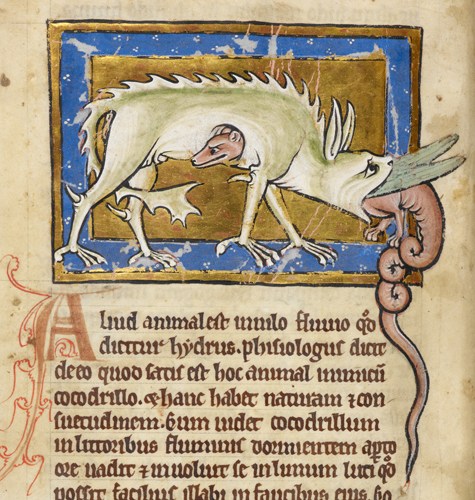 Aliud animal est in nilo fluuio qđ
dicitur hydrus. phisiologus dicit
de eo quod satis est hoc animal inimicū
cocodrillo. & hanc habet naturam ⁊ con
suetudinem. Cum uidet cocodrillum
in littoribus fluminis dormientem apto
ore uadit ⁊ inuoluit se in limum luti qo
possit facilius illabi in faucibus eius